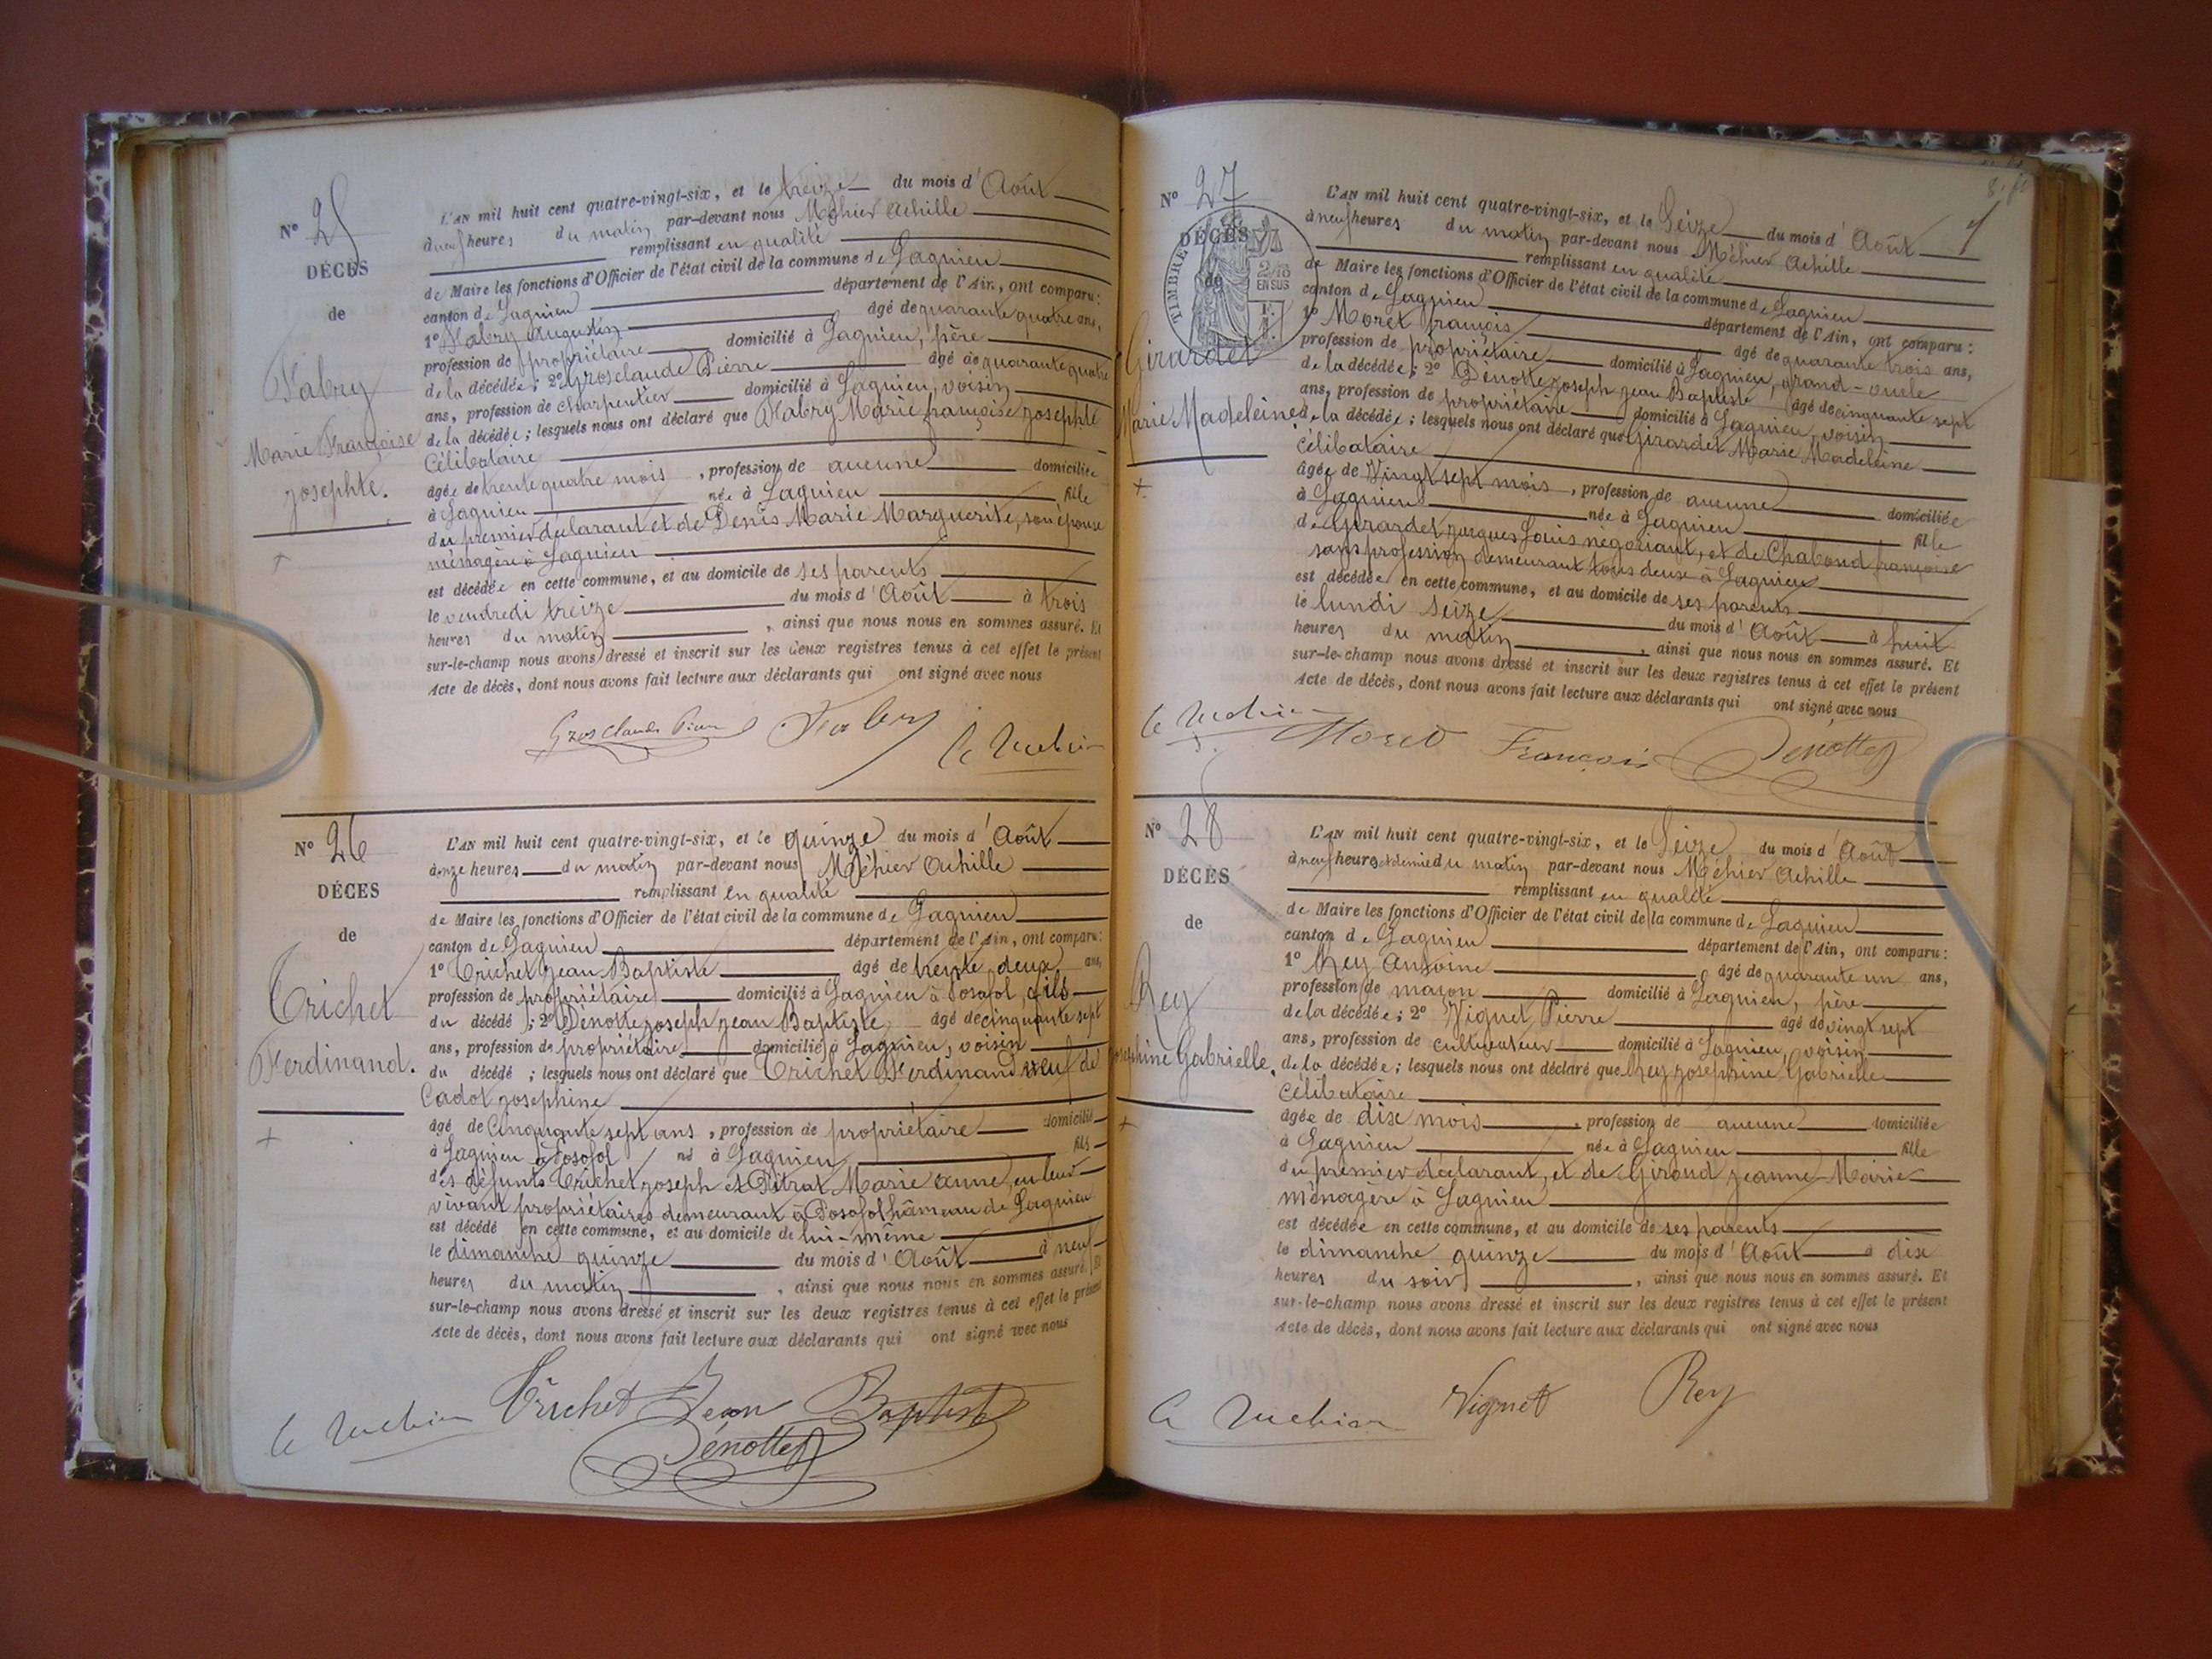 N° 25
DÉCÈS
de
Fabry
Marie Françoise
Josephte.
L'AN mil huit cent quatre-vingt-six, et le treize du mois d'Août
à neuf heures du matin par-devant nous Méhier Achille
remplissant en qualité
de Maire les fonctions d'Officier de l'état civil de la commune de Lagnieu
canton de Lagnieu département de l'Ain, ont comparu:
1° Fabry Augustin âgé de quarante quatre ans,
profession de propriétaire domicilié à Lagnieu, père
de la décédée; 2° Grosclaude Pierre âgé de quarante quatre
ans, profession de charpentier domicilié à Lagnieu, voisin
de la décédée; lesquels nous ont déclaré que Fabry Marie françoise Josephte
Célibataire
âgée de trente quatre mois, profession de aucune domiciliée
à Lagnieu née à Lagnieu fille
du premier déclarant et de Denis Marie Marguerite, son épouse
ménagère à Lagnieu
est décédée en cette commune, et au domicile de ses parents
le vendredi treize du mois d'Août à trois
heures du matin, ainsi que nous nous en sommes assuré. Et
sur-le-champ nous avons dressé et inscrit sur les deux registres tenus à cet effet le présent
Acte de décès, dont nous avons fait lecture aux déclarants qui ont signé avec nous
Grosclaude Pierre Fabry
N° 26
DÉCES
de
Trichet
Ferdinand.
L'AN mil huit cent quatre-vingt-six, et le quinze du mois d'Août
à onze heures du matin par-devant nous Méhier Achille
remplissant en qualité
de Maire les fonctions d'Officier de l'état civil de la commune de Lagnieu
canton de Lagnieu département de l'Ain, ont comparu:
1° Trichet Jean Baptiste âgé de trente deux ans,
profession de propriétaire domicilié à Lagnieu à Posafol, fils
du décédé; 2° Dénotte Joseph Jean Baptiste âgé de cinquante sept
ans, profession de propriétaire domicilié à Lagnieu, voisin
du décédé; lesquels nous ont déclaré que Trichet Ferdinand veuf de
Cadot Josephine
âgé de Cinquante sept ans, profession de propriétaire domicilié
à Lagnieu à Posafol né à Lagnieu fils
des défunts Trichet Joseph et Pitrat Marie Anne, en leur
vivant propriétaires demeurant à Posafol hâmeau de Lagnieu
est décédé en cette commune, et au domicile de lui-même
le dimanche quinze du mois d'Août à neuf
heures du matin, ainsi que nous nous en sommes assuré. Et
sur-le-champ nous avons dressé et inscrit sur les deux registres tenus à cet effet le présent
Acte de décès, dont nous avons fait lecture aux déclarants qui ont signé avec nous
Trichet Jean Baptiste
Dénotte
N° 27
DÉCÈS
de
TIMBRE
2/10
EN SUS
Girardet
Marie Madeleine
L'AN mil huit cent quatre-vingt-six, et le Seize du mois d'Août
à neuf heures du matin par-devant nous Méhier Achille
remplissant en qualité
de Maire les fonctions d'Officier de l'état civil de la commune de Lagnieu
canton de Lagnieu département de l'Ain, ont comparu:
1° Moret françois âgé de quarante trois ans,
profession de propriétaire domicilié à Lagnieu, grand-oncle
de la décédée; 2° Dénotte Joseph Jean Baptiste âgé de cinquante sept
ans, profession de propriétaire domicilié à Lagnieu, voisin
de la décédée; lesquels nous ont déclaré que Girardet Marie Madeleine
Célibataire
âgée de Vingt sept mois, profession de aucune domiciliée
à Lagnieu née à Lagnieu fille
de Girardet Jacques Louis négociant, et de Chaboud françoise
sans profession demeurant tous deux à Lagnieu
est décédée en cette commune, et au domicile de ses parents
le lundi seize du mois d'Août à huit
heures du matin, ainsi que nous nous en sommes assuré. Et
sur-le-champ nous avons dressé et inscrit sur les deux registres tenus à cet effet le présent
Acte de décès, dont nous avons fait lecture aux déclarants qui ont signé avec nous
Moret François Dénotte
N° 28
DÉCÈS
de
Rey
Josephine Gabrielle.
L'AN mil huit cent quatre-vingt-six, et le Seize du mois d'Août
à neuf heures et demie du matin par-devant nous Méhier Achille
remplissant en qualité
de Maire les fonctions d'Officier de l'état civil de la commune de Lagnieu
canton de Lagnieu département de l'Ain, ont comparu:
1° Rey Antoine âgé de quarante un ans,
profession de maçon domicilié à Lagnieu, père
de la décédée; 2° Vignet Pierre âgé de vingt sept
ans, profession de cultivateur domicilié à Lagnieu, voisin
de la décédée; lesquels nous ont déclaré que Rey Josephine Gabrielle
Célibataire
âgée de dix mois, profession de aucune domiciliée
à Lagnieu née à Lagnieu fille
du premier déclarant, et de Giroud Jeanne-Marie
ménagère à Lagnieu
est décédée en cette commune, et au domicile de ses parents
le dimanche quinze du mois d'Août à dix
heures du soir, ainsi que nous nous en sommes assuré. Et
sur-le-champ nous avons dressé et inscrit sur les deux registres tenus à cet effet le présent
Acte de décès, dont nous avons fait lecture aux déclarants qui ont signé avec nous
Vignet Rey